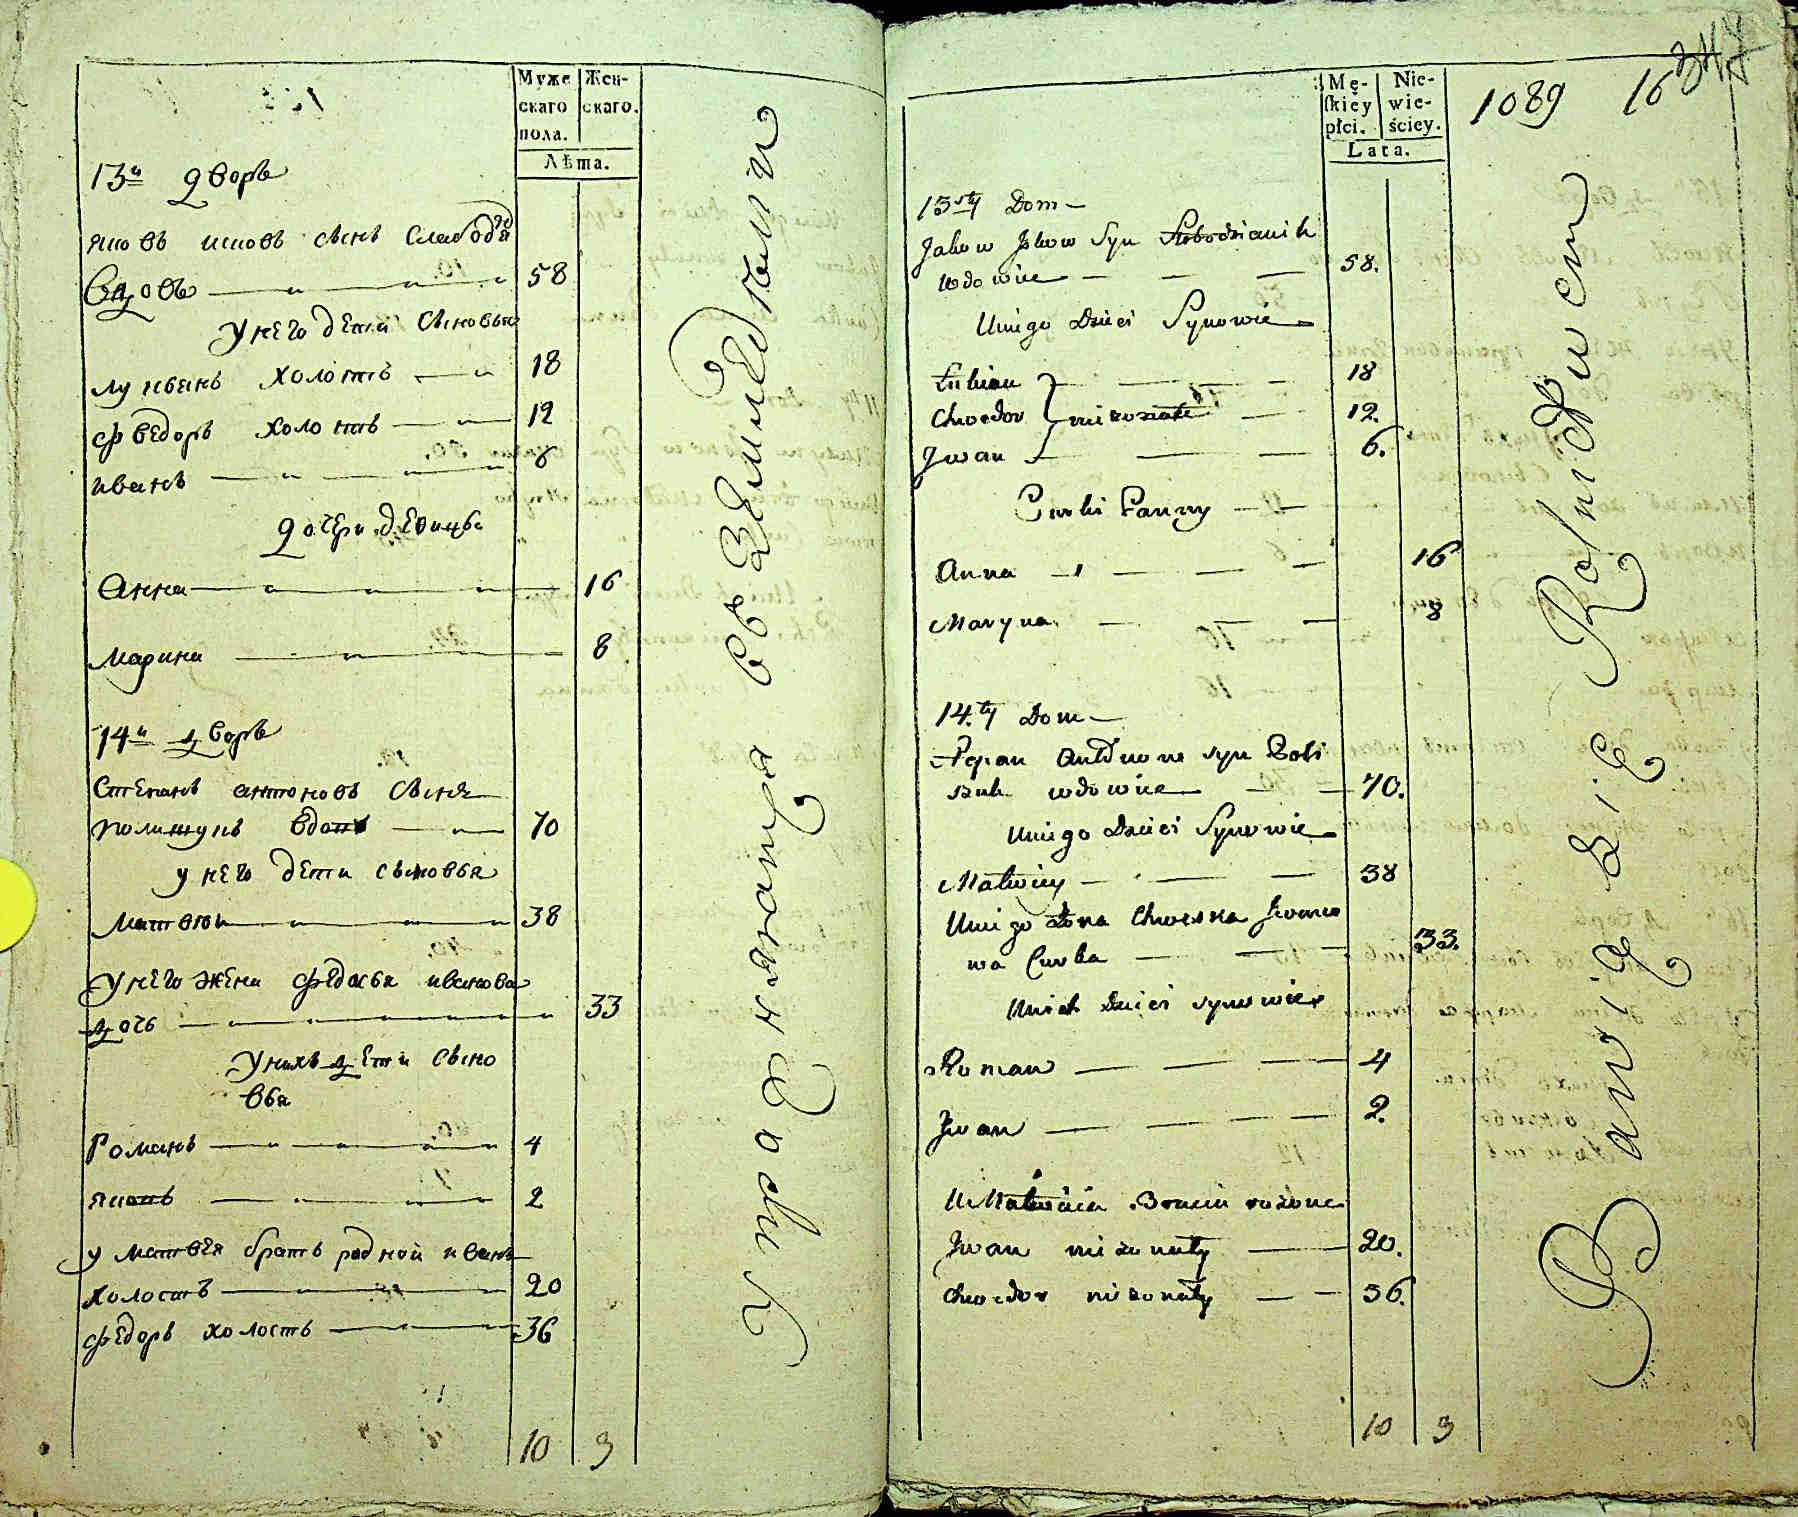 Муже
скаго
пола.
Жен-
скаго.
Лѣта.
13й дворъ
вдовъ
58
У него дети сыновья
лукьянъ холостъ
18
фведоръ холостъ
12
иванъ
6
дочери девицы
Анна
16
Марина
8
14й дворъ
Степанъ антоновъ сынъ
полишукъ вдовъ
70
у него дети сыновья
Матвей
38
У него жена федосья иванова
дочь
33
У нихъ дети сыно
вья
Романъ
4
2
у матвея братъ родной иванъ
холостъ
20
федоръ холостъ
36
10 3
упражняются въ земледелии
1089 16
347
Mę-
skiey
płci.
Nie-
wie-
ściey.
Lata.
13sty Dom
Syn Słobodzianik
wdowiec
58.
Uniego Dzieci Synowie
Łukian
18
Chwedor nieżonate
12.
Jwan
6.
Curki Panny
Anna
16
Maryna
8
14.ty Dom
Stepan Antonow syn Poli
szuk wdowiec
70.
Uniego Dzieci Synowie
Matwiey
38
Uniego Żona Jwano
wa Curka
33.
Unich Dzieci synowie
Roman
4
Jwan
2.
U Matwieia Bracia
Jwan nieżonaty
20.
Chwedor nieżonaty
36.
10 3
Bawią się Rolnictwem